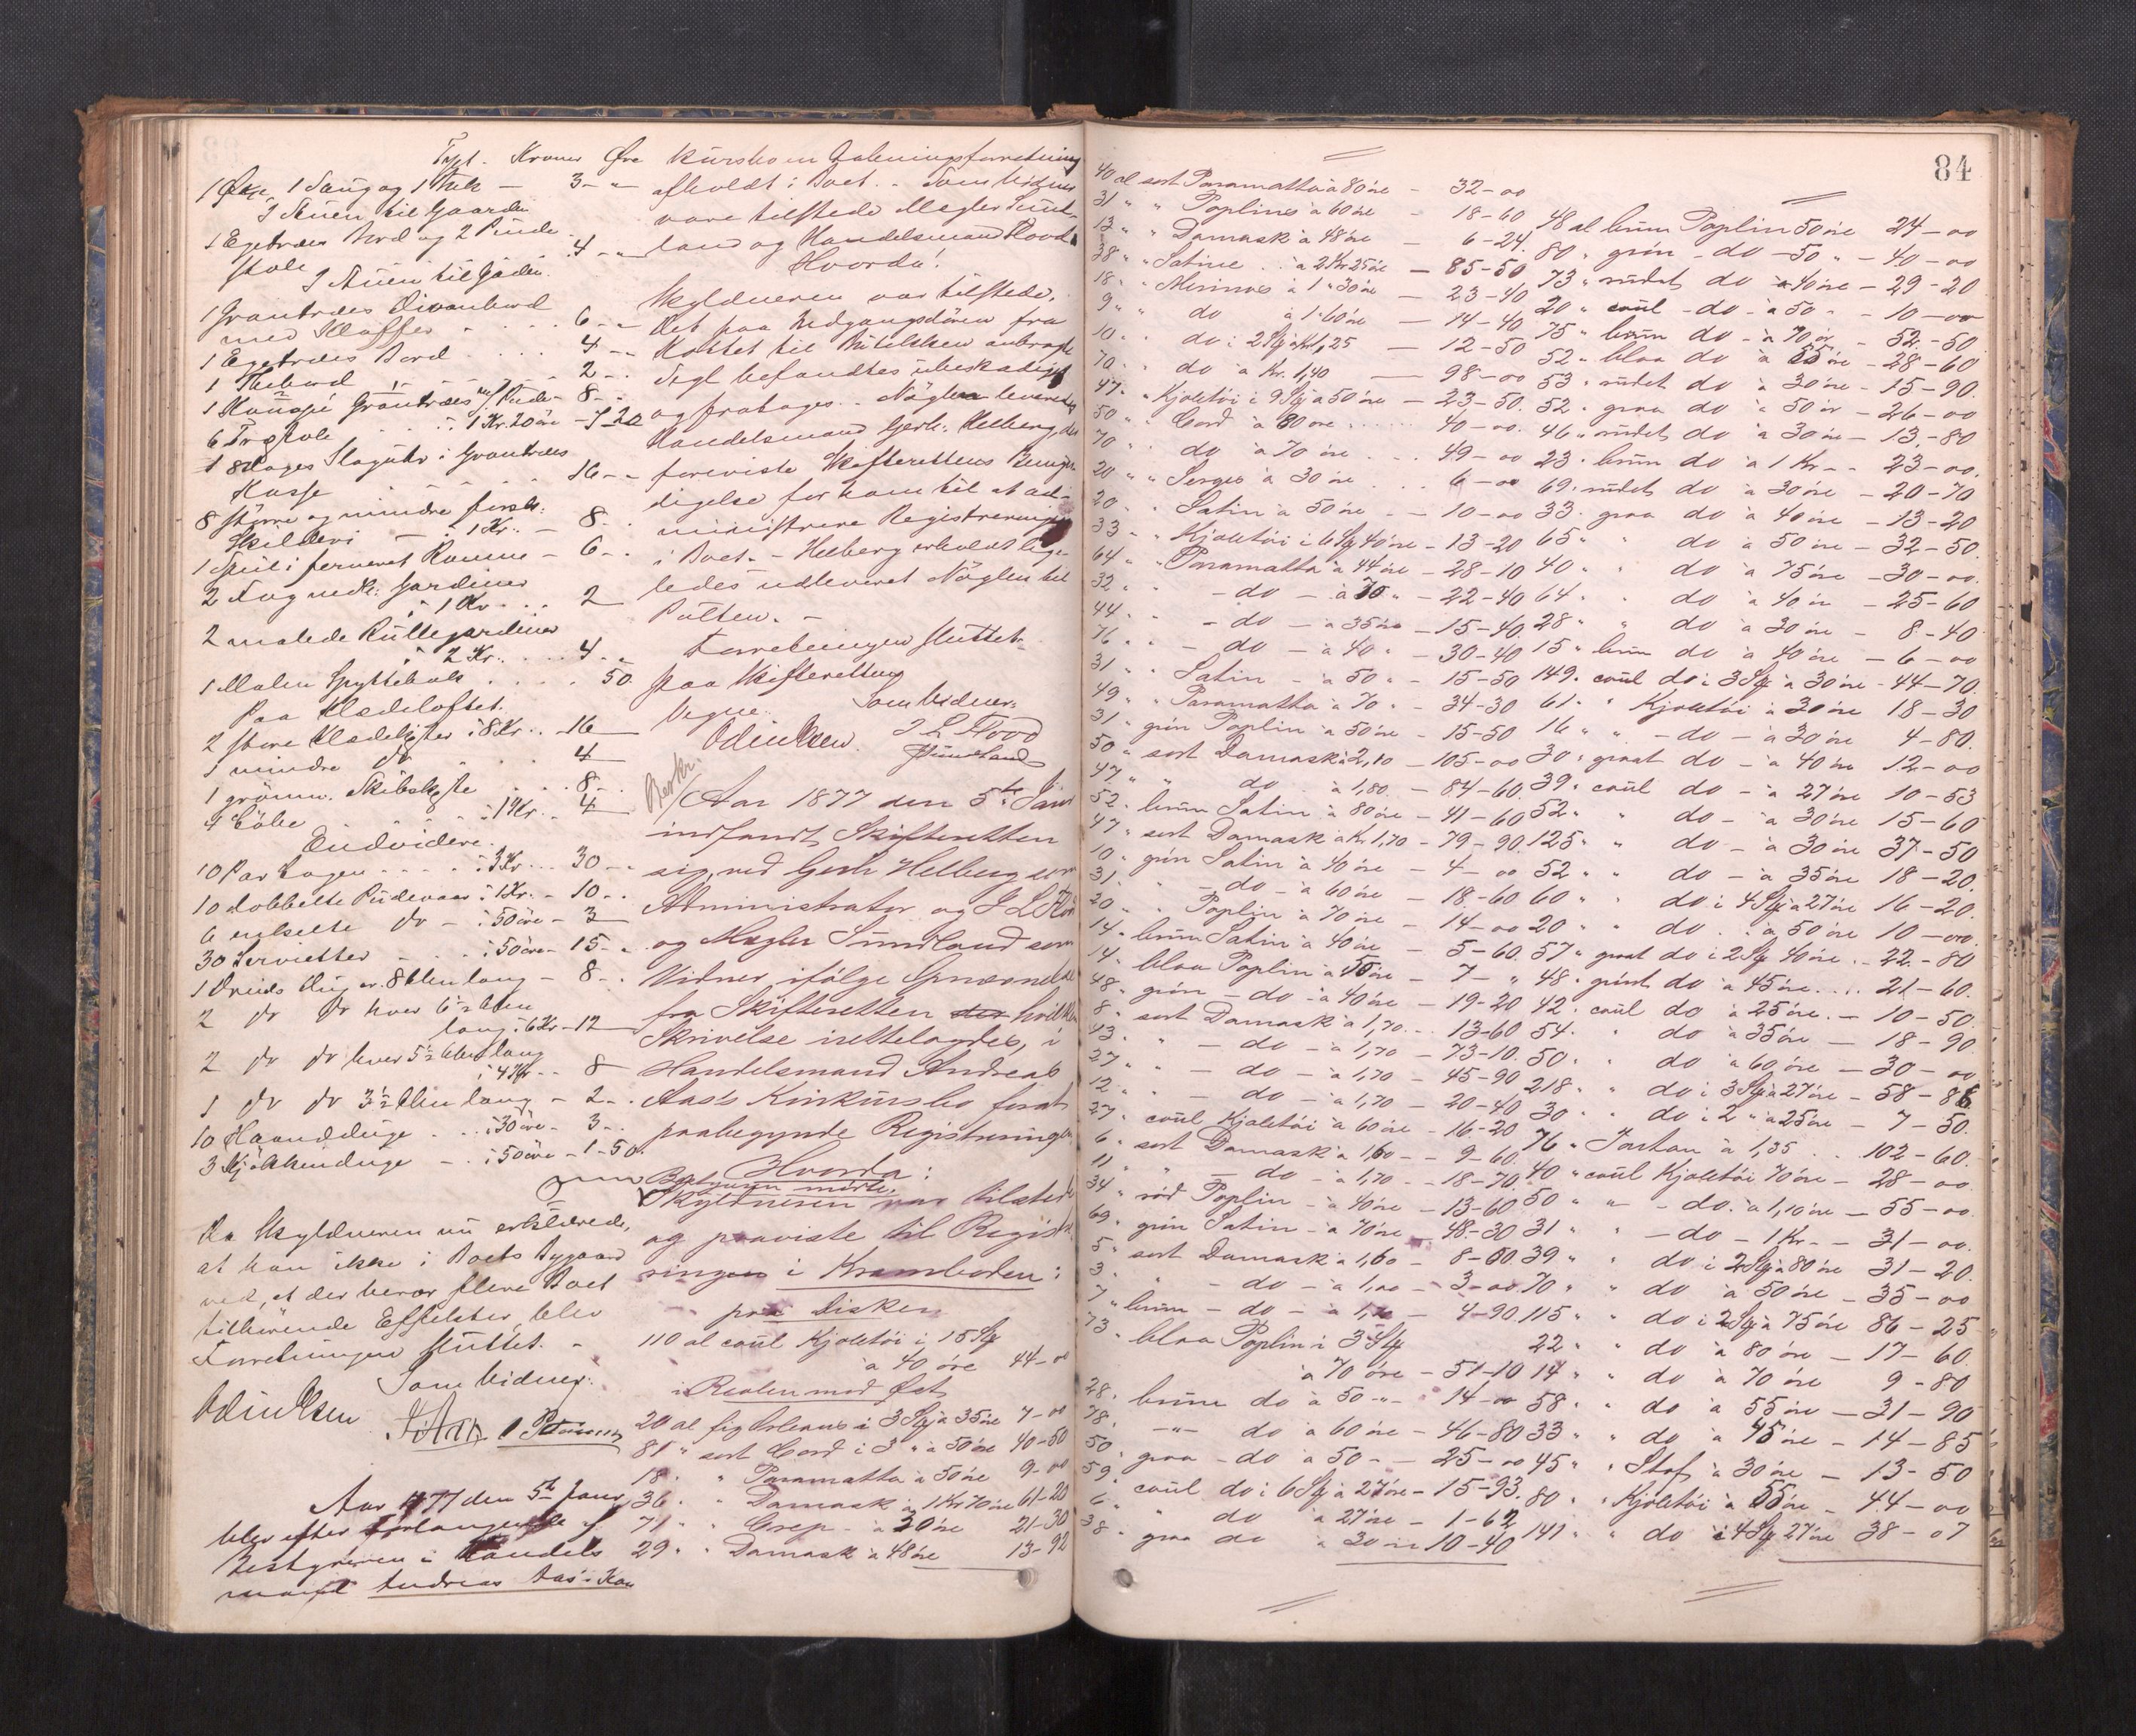 Kroner Øre
1 Øxe, 1 Saug og 1 - 3-"
I Stuen til Gaarden
1 Egetræes Bord og 2 Pinde-
stole 4-"
I Stuen til Gaden.
1 Grantræes Divanbord
med Skuffer 6-"
1 Egetræes Bord 4-"
1 Thebord 2-"
1 Grantræes 8-"
6 Træstole à 1 Kr. 20 øre - 7-20
1 8 Dages Slaguhr i Grantræes
Kasse 16-"
8 større og mindre forsk:
Skilderi à 1 Kr. - 8-"
1 Speil i ferneret Ramme - 6-"
2 Fag Gardiner
à 1 Kr. 2
2 malede Rullegardiner
à 2 Kr. 4-"
1 Malm Spyttebak 50
Paa Klædeloftet.
2 store Klædekister à 8 Kr. 16
1 mindre do 4
1 grønm. Skibskiste 8-"
4 à 1 Kr. 4
Endvidere.
10 Par Lagen à 3 Kr. 30-"
10 dobbelte Pudevaar à 1 Kr. - 10-"
6 enkelte do - à 50 øre - 3
30 Servietter à 50 øre - 15-"
1 Dug 8 Alen lang - 8-"
2 do do hver 6½ Alen
lang à 6 Kr - 12
2 do do hver 5½ Alen lang
à 4 Kr - 8
1 do do 3½ Alen lang - 2-"
10 Haandduge à 30 øre - 3-"
3 Kjøkkenduge à 50 øre - 1-50
Da Skyldneren nu erklærede,
at han ikke i Boets Bygaard
ved, at der beror flere Boet
tilhørende Effekter, blev
Forretningen sluttet.
Som Vidner:
Odin Olsen
Aar 1877 den 5te Janr
blev efter Forlangende af
Bestyreren i Handels
mand Andreas Aas's Kon
kursbo en Aabningsforretning
afholdt i Boet. Som Vidner
vare tilstede Mægler Sund-
land og Handelsmand Flood
Hvorda:
Skyldneren var tilstede.
Det paa Indgangsdøren fra
anbragte
Segl befandtes ubeskadiget
og fratoges. Nøglen leveredes
Handelsmand Gerh. Helberg, der
foreviste Skifterettens Bemyn-
digelse for ham til at ad-
ministrere Registreringen
i Boet. Helberg erholdt lige-
ledes udleveret Nøglen til
Pulten. -
Forretningen sluttet.
paa Skifterettens
Vegne. Som Vidner.
Odin Olsen. I L Flood
Sundland
Aar 1877 den 5te Janr
indfandt Skifteretten
sig, ved Gerh Helberg som
Administrator og I L Flood
og Mægler Sundland som
Vidner, ifølge Opnævnelse
fra Skifteretten hvilken
Skrivelse ilægges, i
Handelsmand Andreas
Aas's Konkursbo forat
paabegynde Registreringen
Hvorda:
Bestyreren mødte.
Skyldneren var tilstede
og paaviste til Registre-
ringen i Kramboden:
paa Disken
110 al coul Kjoletøi i 15 Sty
à 40 øre 44-00
i Reolen mod Øst
20 al fig Orleans i 3 Sty à 35 øre 7-00
81 " sort Cord i 3 " à 50 øre 40-50
18 " " Paramatta à 50 øre 9-00
36 " " Damask à 1 Kr 70 øre 61-20
71 " " Crep à 30 øre 21-30
29 " " Damask à 48 øre 13-92
84
40 al sort Paramatta à 80 øre - 32-00
31 " " Poplines à 60 øre - 18-60
13 " " Damask à 48 øre - 6-24
38 " " Satine à 2 Kr 25 øre - 85-50
18 " " Merinos à 1 " 30 øre - 23-40
9 " " do à 1 " 60 øre - 14-40
10 " " do i 2 Sty à Kr 1,25 - 12-50
70 " " do à Kr. 1,40 - 98-00
47 " " Kjoletøi i 9 Sty à 50 øre - 23-50
50 " " Cord à 80 øre 40-00
70 " " do à 70 øre 49-00
20 " " Serges à 30 øre 6-00
20 " " Satin à 50 øre - 10-00
33 " " Kjoletøi i 6 Sty 40 øre - 13-20
64 " " Paramatta à 44 øre - 28-10
32 " " - do - à 70 " - 22-40
44 " " - do - à 35 øre - 15-40
76 " " - do - à 40 " - 30-40
31 " " Satin - à 50 " - 15-50
49 " " Paramatta à 70 " - 34-30
31 " grøn Poplin à 50 øre - 15-50
50 " sort Damask à 2,10 - 105-00
47 " " do à 1,80 - 84-60
52 " brun Satin à 80 øre - 41-60
47 " sort Damask à Kr 1,70 - 79-90
10 " grøn Satin à 40 øre - 4-00
31 " " - do - à 60 øre - 18-60
20 " " Poplin à 70 øre - 14-00
14 " brun Satin à 40 øre - 5-60
14 " blaa Poplin à 50 øre - 7-"
48 " grøn - do - à 40 øre - 19-20
8 " sort Damask à 1,70 - 13-60
43 " " - do - à 1,70 - 73-10
27 " " - do - à 1,70 - 45-90
12 " " - do - à 1,70 - 20-40
27 " coul Kjoletøi à 60 øre - 16-20
6 " sort Damask à 1,60 - 9-60
11 " " - do - à 1,70 - 18-70
34 " rød Poplin - à 40 øre - 13-60
69 " grøn Satin - à 70 øre - 48-30
5 " sort Damask à 1,60 - 8-00
3 " " - do - à 1,00 - 3-00
7 " brun - do - à 1,70 - 4-90
73 " blaa Poplin i 3 Sty
à 70 øre - 51-10
28 " brune do à 50 " - 14-00
78 " - " - do à 60 øre - 46-80
50 " graa - do à 50 - - 25-00
59 " coul do i 6 Sty à 27 øre - 15-93
6 " " do à 27 øre - 1-62
38 " graa do à 30 øre 10-40
48 al brun Poplin 50 øre 24-00
80 " grøn - do - 50 " - 40-00
73 " rudet do à 40 øre - 29-20
20 " coul - do - à 50 - - 10-00
75 " brun do - à 70 ør - 52-50
52 " blaa do à 55 øre - 28-60
53 " rudet do à 30 øre - 15-90
52 " graa do à 50 ør - 26-00
46 " rudet do à 30 øre - 13-80
23 " brun do à 1 Kr - - 23-00
69 " rudet do à 30 øre - 20-70
33 " graa do à 40 øre - 13-20
65 " " do à 50 øre - 32-50
40 " " do à 75 øre - 30-00
64 " " do à 40 ør - 25-60
28 " " do à 30 øre - 8-40
15 " brun do à 40 øre - 6-00
149 " coul do i 3 Sty à 30 øre - 44-70
61 " " Kjoletøi à 30 øre 18-30
16 " " - do - à 30 øre 4-80
30 " graat do - à 40 øre 12-00
39 " coul do - à 27 øre 10-53
52 " " do - à 30 øre 15-60
125 " " do - à 30 øre 37-50
52 " " do - à 35 øre 18-20
60 " " do i 4 Sty à 27 øre 16-20
20 " " do à 50 øre 10-00
57 " graat do i 2 Sty 40 øre 22-80
48 " grønt do à 45 øre 21-60
42 " coul do à 25 øre - 10-50
54 " " do à 35 øre - 18-90
50 " " do à 60 øre - 30-00
218 " " do i 3 Sty à 27 øre - 58-86
30 " " do i 2 " à 25 øre - 7-50
76 " Tartan à 1,35 102-60
40 " coul Kjoletøi 70 øre - 28-00
50 " " - do. à 1,10 øre - 55-00
31 " " - do - 1 Kr - - 31-00
39 " " do i 2 Sty à 80 øre 31-20
70 " " do à 50 øre - 35-00
115 " " do i 2 Sty à 75 øre 86-25
22 " " do à 80 øre - 17-60
14 " " do à 70 øre 9-80
58 " " do à 55 øre - 31-90
33 " " do à 45 øre - 14-85
45 " " Stof à 30 øre - 13-50
80 " " Kjoletøi à 55 øre - 44-00
141 " " do i 4 Sty 27 øre 38-07